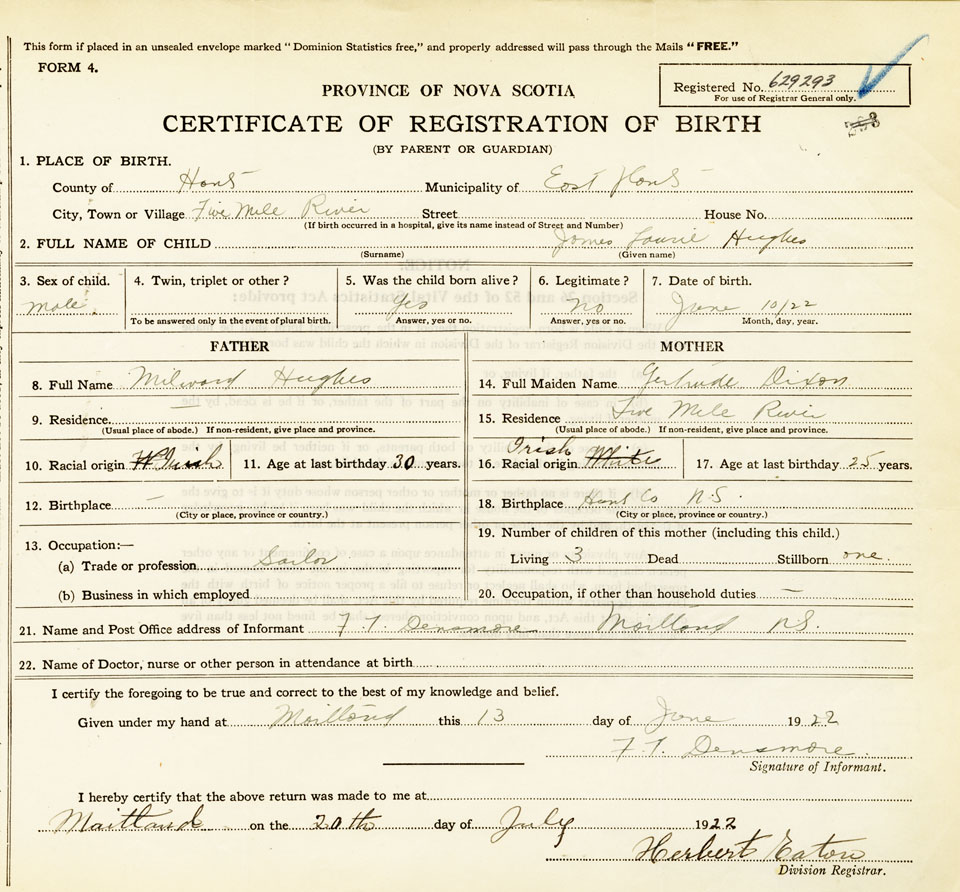 This form if placed in an unsealed envelope marked "Dominion Statistics free," and properly addressed will pass through the Mails "FREE."
FORM 4.
Registered No. 629293
For use of Registrar General only.
PROVINCE OF NOVA SCOTIA
CERTIFICATE OF REGISTRATION OF BIRTH
(BY PARENT OR GUARDIAN)
1. PLACE OF BIRTH.
County of Hants Municipality of East Hants
City, Town or Village Five Mile River Street House No.
(If birth occurred in a hospital, give its name instead of Street and Number)
2. FULL NAME OF CHILD James Laurie Hughes
(Surname) (Given name)
3. Sex of child. 4. Twin, triplet or other? 5. Was the child born alive? 6. Legitimate? 7. Date of birth.
Male Yes No June 10/22
To be answered only in the event of plural birth. Answer, yes or no. Answer, yes or no. Month, day, year.
FATHER MOTHER
8. Full Name Milward Hughes 14. Full Maiden Name Gertrude Dixon
9. Residence. 15. Residence Five Mile River
(Usual place of abode.) If non-resident, give place and province. (Usual place of abode.) If non-resident, give place and province.
10. Racial origin Irish 11. Age at last birthday 30 years. 16. Racial origin White Irish 17. Age at last birthday 25 years.
12. Birthplace — 18. Birthplace Hants Co N.S.
(City or place, province or country.) (City or place, province or country.)
13. Occupation:— 19. Number of children of this mother (including this child.)
(a) Trade or profession Sailor Living 3 Dead Stillborn one.
(b) Business in which employed 20. Occupation, if other than household duties —
21. Name and Post Office address of Informant F. T. Densmore Maitland N.S.
22. Name of Doctor, nurse or other person in attendance at birth
I certify the foregoing to be true and correct to the best of my knowledge and belief.
Given under my hand at Maitland this 13 day of June 1922
F. T. Densmore
Signature of Informant.
I hereby certify that the above return was made to me at
Maitland on the 20th day of July 1922
Herbert Eaton
Division Registrar.